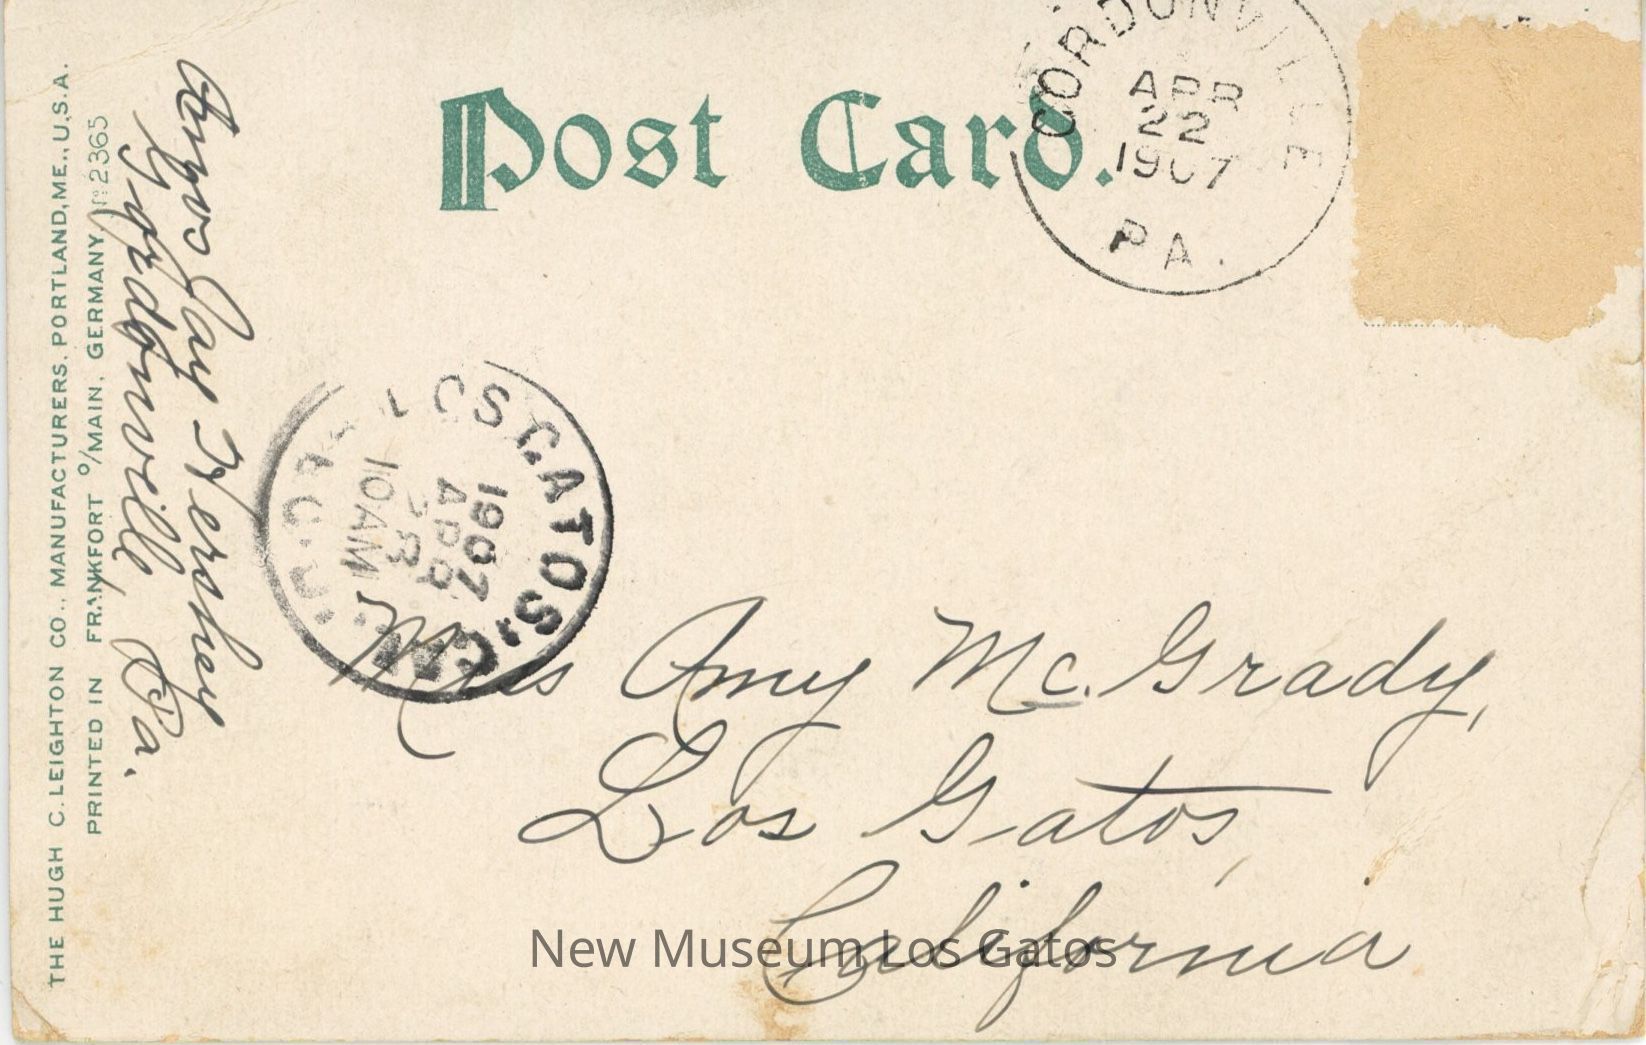 Post Card.
GORDONVILLE
APR
22
1907
PA.
Amos Jay Hershey
Gordonville, Pa.
THE HUGH C. LEIGHTON CO., MANUFACTURERS, PORTLAND, ME., U.S.A.
PRINTED IN FRANKFORT O/MAIN, GERMANY Nº 2365
LOS GATOS, CAL.
1907
APR
10 AM
REC'D.
Miss Amy Mc. Grady,
Los Gatos,
California
New Museum Los Gatos